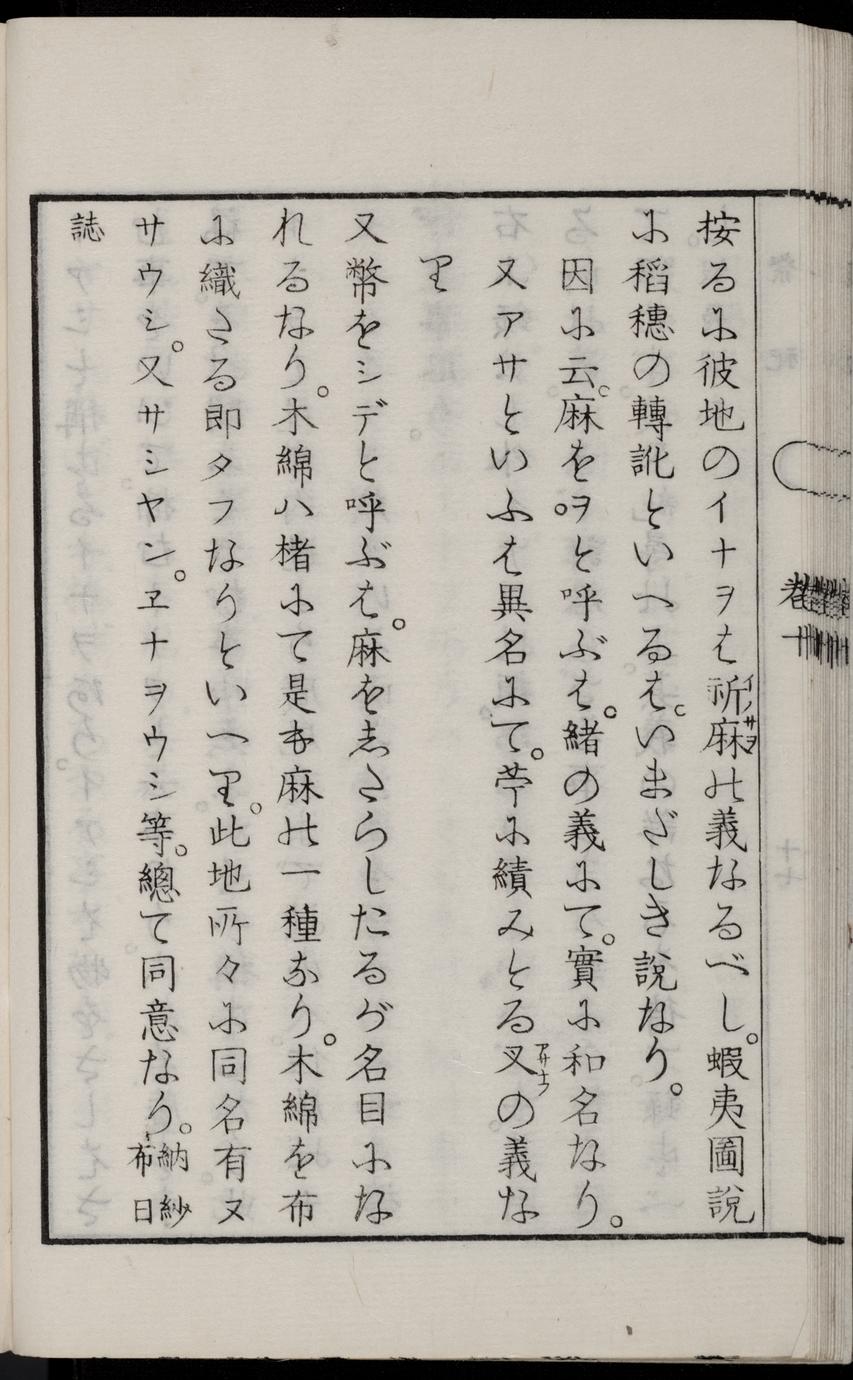 按るに彼地のイナヲは祈麻の義なるべし。蝦夷圖説
に稻穗の轉訛といへるは。いまざしき説なり。
因に云。麻をヲと呼ぶは。緒の義にて。實に和名なり。
又アサといふは異名にて。苧に績みとる叉の義な
り
又幣をシデと呼ぶは。麻をしさらしたるが名目にな
れるなり。木綿ハ楮にて是も麻の一種なり。木綿を布
に織さる即タフなりといへり。此地所々に同名有ヌ
サウシ。又サシヤン。ヱナヲウシ等。總て同意なり。納紗布日
誌
イノサヲ
巻十